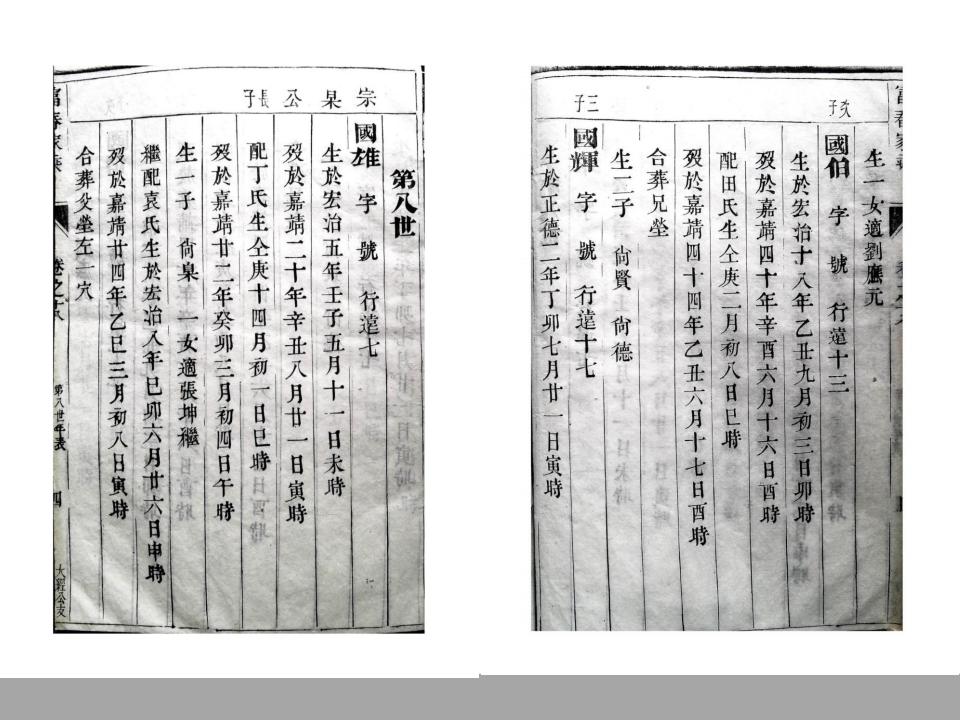 宗杲公長子
第八世
國雄 字 號 行遠七
生於宏治五年壬子五月十一日未時
歿於嘉靖二十年辛丑八月廿一日寅時
配丁氏生仝庚十四月初一日巳時
歿於嘉靖廿二年癸卯三月初四日午時
生一子 尙臯 一女適張坤繼
繼配袁氏生於宏治八年巳卯六月廿六日申時
歿於嘉靖廿四年乙巳三月初八日寅時
合葬父塋左一穴
富春家乘 卷之十八 第八世年表 四 大經公支
生一女適劉應元
次子
國伯 字 號 行遠十三
生於宏治十八年乙丑九月初三日卯時
歿於嘉靖四十年辛酉六月十六日酉時
配田氏生仝庚二月初八日巳時
歿於嘉靖四十四年乙丑六月十七日酉時
合葬兄塋
生二子 尙賢 尙德
三子
國輝 字 號 行遠十七
生於正德二年丁卯七月廿一日寅時